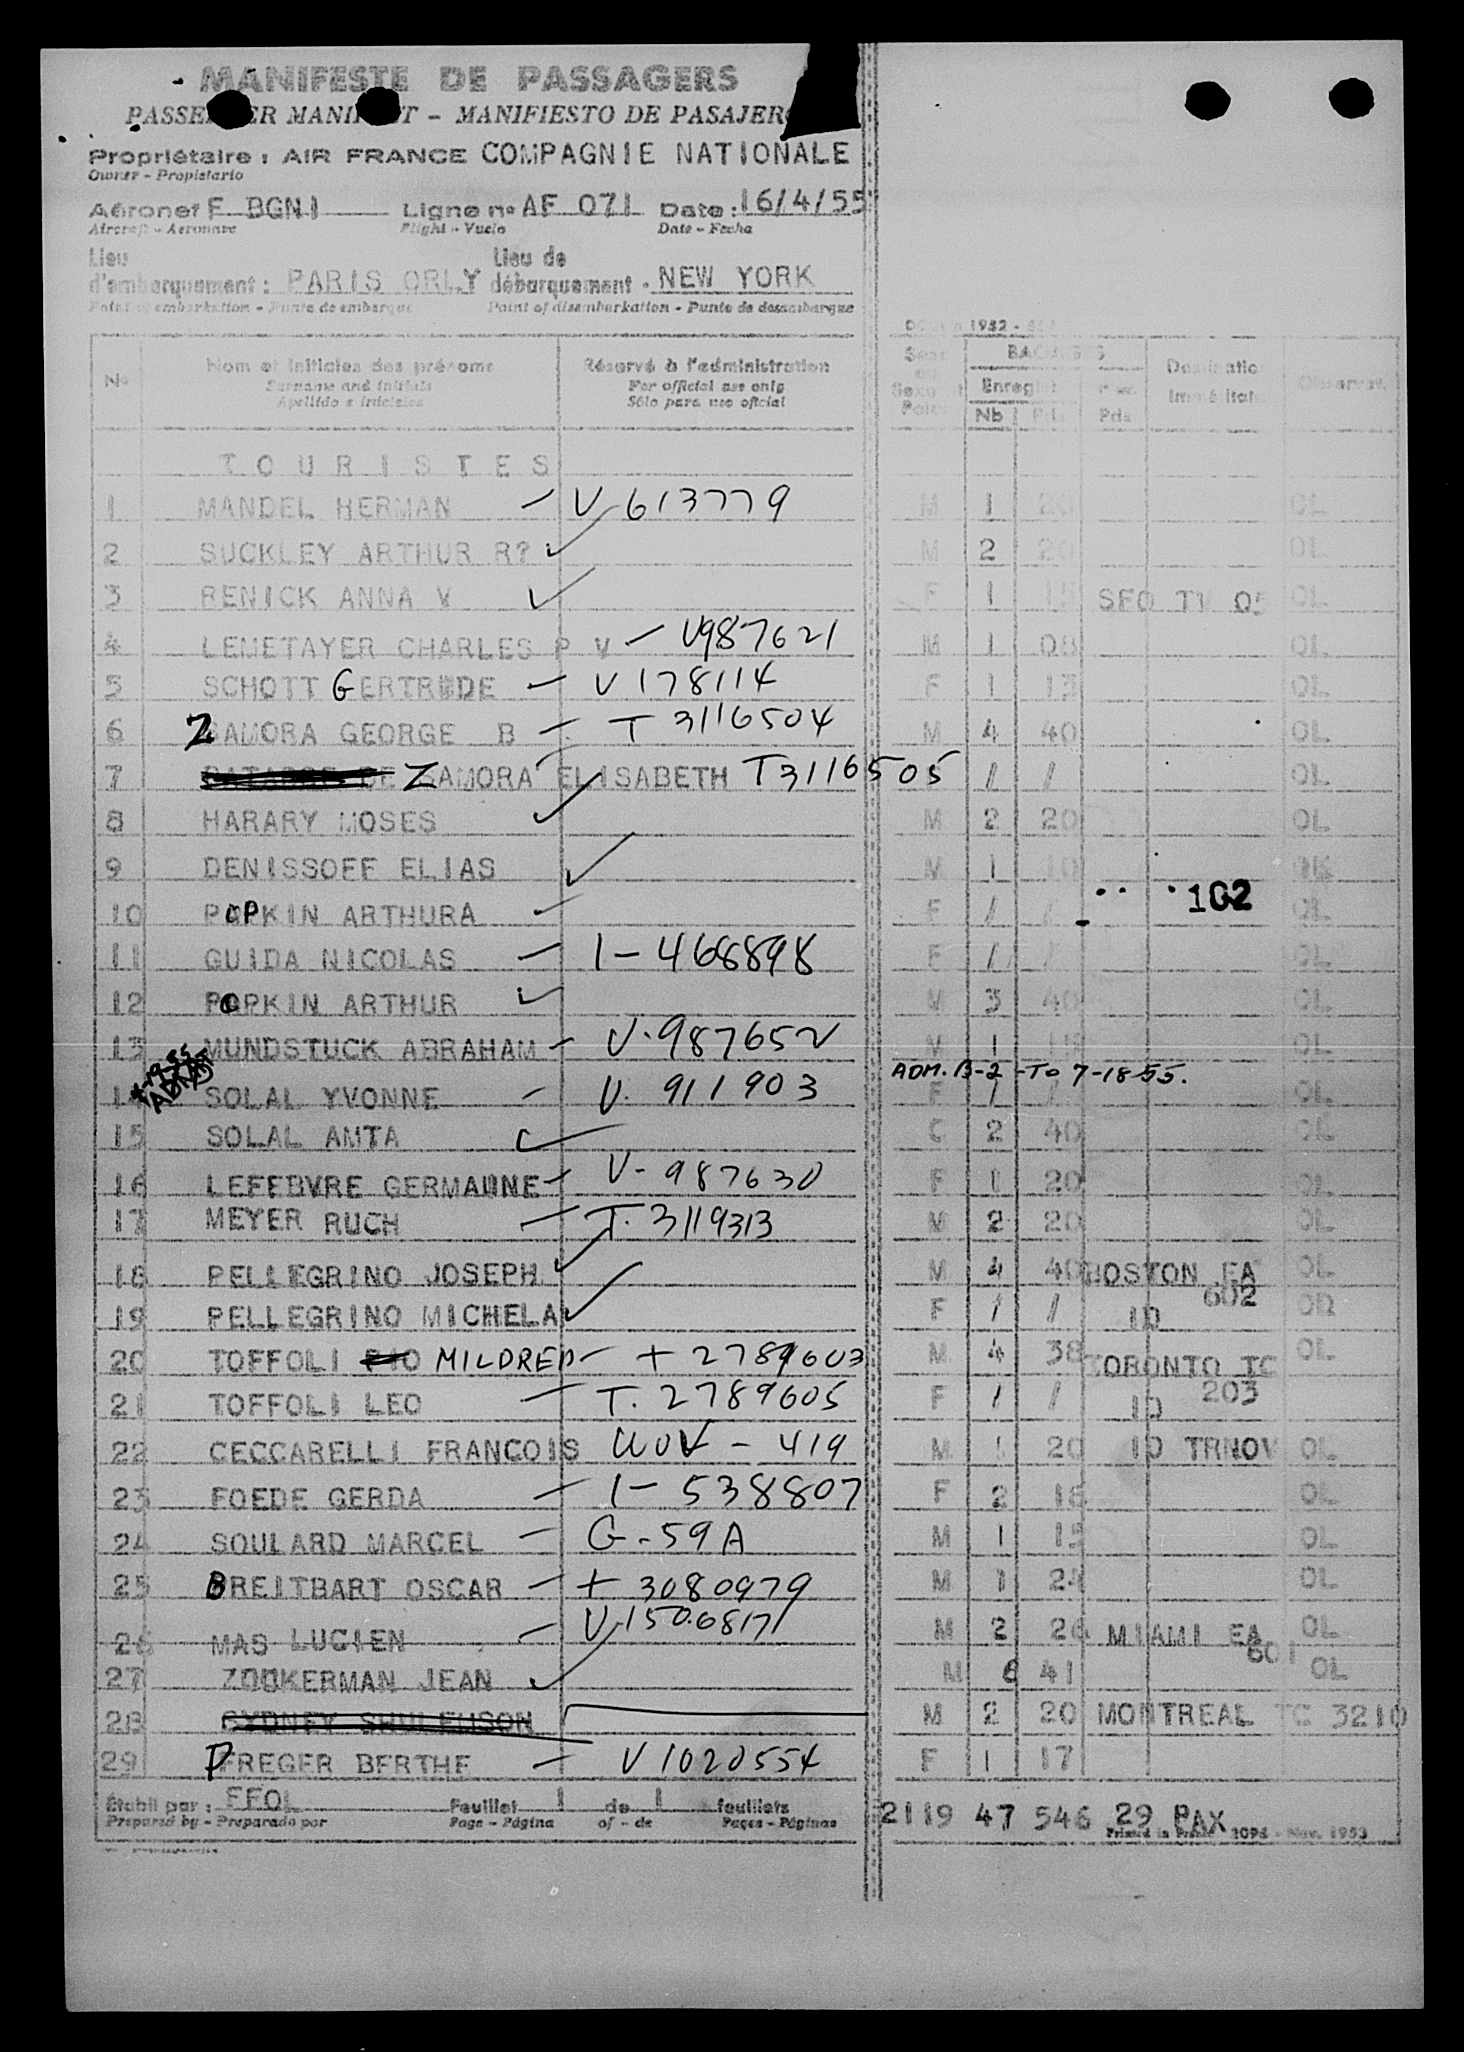 MANIFESTE DE PASSAGERS
PASSENGER MANIFEST - MANIFIESTO DE PASAJER
Propriétaire : AIR FRANCE COMPAGNIE NATIONALE
Owner - Propietario
Aéronef F BGNI Ligne nº AF 071 Date : 16/4/55
Aircraft - Aeronave Flight - Vuelo Date - Fecha
Lieu d'embarquement : PARIS ORLY Lieu de débarquement - NEW YORK
Point of embarkation - Punto de embarque Point of disembarkation - Punto de desembarque
1952
Nº Nom et initiales des prénoms Réservé à l'administration Sexe BAGAGES Destination Observat.
Surname and initials For official use only Enregist Immédiate
Apellido e iniciales Sólo para uso oficial Nb Pds Pds
TOURISTES
1 MANDEL HERMAN - V 613779 M 1 20 OL
2 SUCKLEY ARTHUR R? ✓ M 2 20 OL
3 RENICK ANNA V ✓ F 1 15 SFO TW 05 OL
4 LEMETAYER CHARLES P V - V987621 M 1 08 OL
5 SCHOTT GERTRUDE - V 178114 F 1 13 OL
6 ZAMORA GEORGE B - T 3116504 M 4 40 OL
7 DE ZAMORA ELISABETH T3116505 / / OL
8 HARARY MOSES ✓ M 2 20 OL
9 DENISSOFF ELIAS ✓ M 1 10 OL
10 POPKIN ARTHURA - F / / 102 OL
11 GUIDA NICOLAS - 1-468898 F / / OL
12 POPKIN ARTHUR ✓ M 3 40 OL
13 MUNDSTUCK ABRAHAM - V-987652 M 1 OL
ADM. B-2 -TO 7-18-55.
14 SOLAL YVONNE - V. 911903 F / / OL
15 SOLAL AMTA ✓ C 2 40 OL
16 LEFEBVRE GERMAUNE - V-987630 F 1 20 OL
17 MEYER RUCH - T. 3119313 M 2 20 OL
18 PELLEGRINO JOSEPH ✓ M 4 40 BOSTON EA 602 OL
19 PELLEGRINO MICHELA ✓ F / / ID OL
20 TOFFOLI MILDRED - + 2789603 M 4 38 TORONTO TC 203 OL
21 TOFFOLI LEO - T. 2789605 F / / ID
22 CECCARELLI FRANCOIS - 419 M 1 20 ID TRNOV OL
23 FOEDE GERDA - 1-538807 F 2 18 OL
24 SOULARD MARCEL - G-59A M 1 15 OL
25 BREITBART OSCAR - + 3080979 M 1 24 OL
26 MAS LUCIEN - V-1506817 M 2 26 MIAMI EA 601 OL
27 ZOOKERMAN JEAN ✓ M 6 41 OL
28 SYDNEY SHULEMSON M 2 20 MONTREAL TC 3210
29 PREGER BERTHE - V 1020554 F 1 17
Établi par : FFOL Feuillet 1 de 1 feuillets 2119 47 546 29 PAX
Prepared by - Preparado por Page - Página of - de Pages - Páginas Printed in France 1096 - Nov. 1953